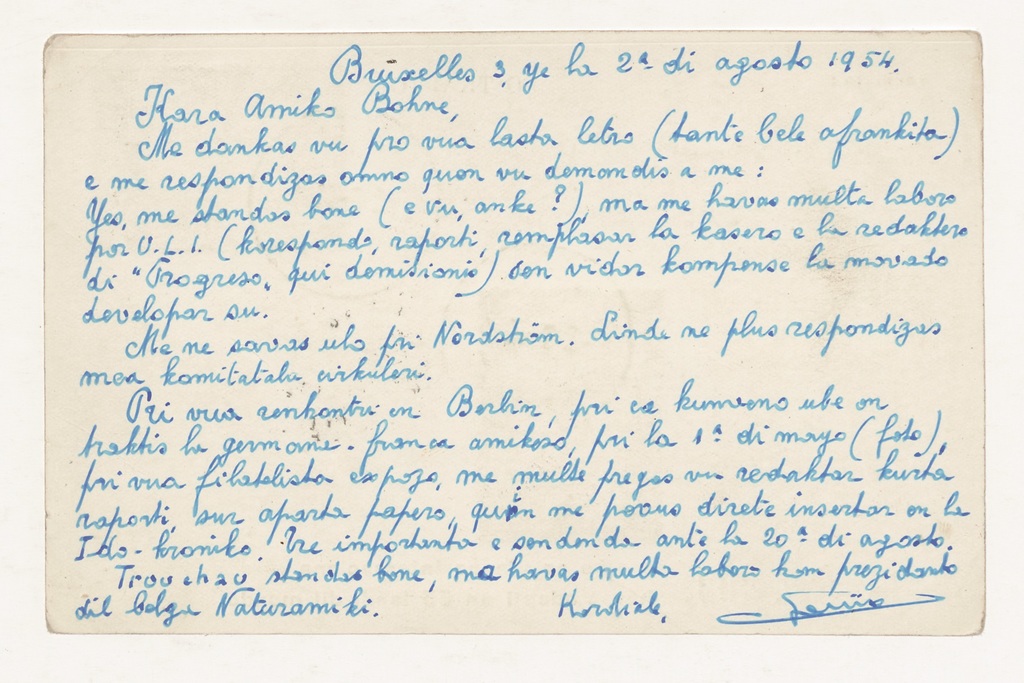 Bruxelles 3, ye la 2ª di agosto 1954.
Kara Amiko Bohne,
Me dankas vu pro vua lasta letro (tante bele afrankita)
e me respondizas omno quon vu demandis a me :
Yes, me standas bone (e vu, anke ?), ma me havas multa laboro
por U.L.I. (korespondo, raporti, remplasar la kasero e la redaktero
di "Progreso", qui demisionis) sen vidar kompense la movado
developar su.
Me ne savas ulo pri Nordström. Linde ne plus respondizas
mea komitatala cirkuleri.
Pri vua renkontri en Berlin, pri ca kunveno ube on
traktis la germana-franca amikeso, pri la 1ª di mayo (foto),
pri vua filatelista expozo, me multe pregas vu redaktar kurta
raporti, sur aparta papero, quin me povus direte insertar en la
Ido-kroniko. Tre importanta e sendenda ante la 20ª di agosto.
standas bone, ma havas multa laboro kom prezidanto
dil belga Naturamiki. Kordiale,